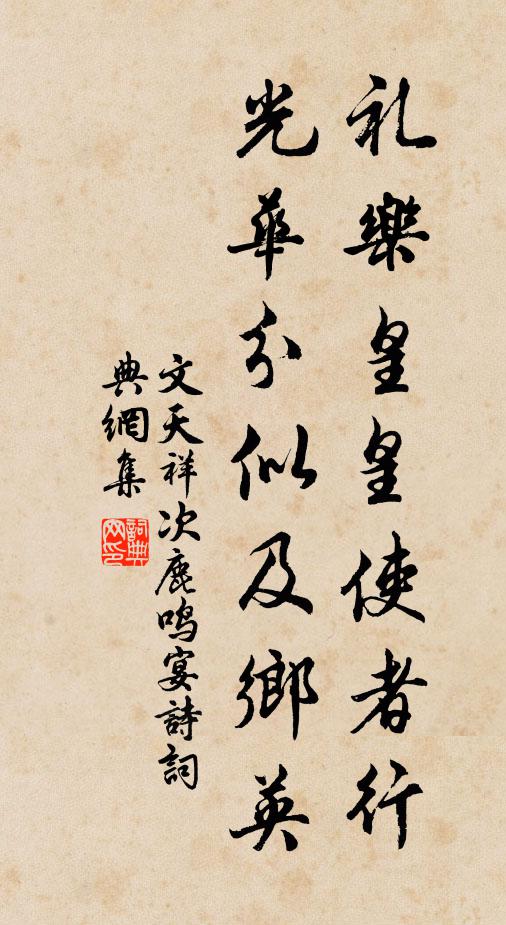 礼樂皇皇使者行
光華分似及鄉英
文天祥次鹿鸣宴詩詞
典網集
詞典網印